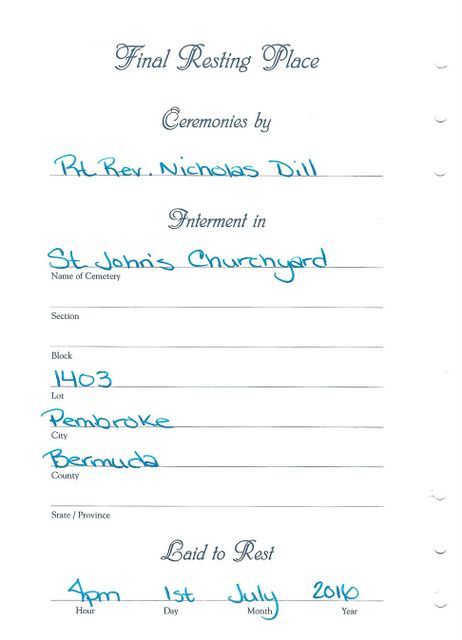 Final Resting Place
Ceremonies by
Rt. Rev. Nicholas Dill
Interment in
St. John's Churchyard
Name of Cemetery
Section
Block
1403
Lot
Pembroke
City
Bermuda
County
State / Province
Laid to Rest
4pm 1st July 2016
Hour Day Month Year